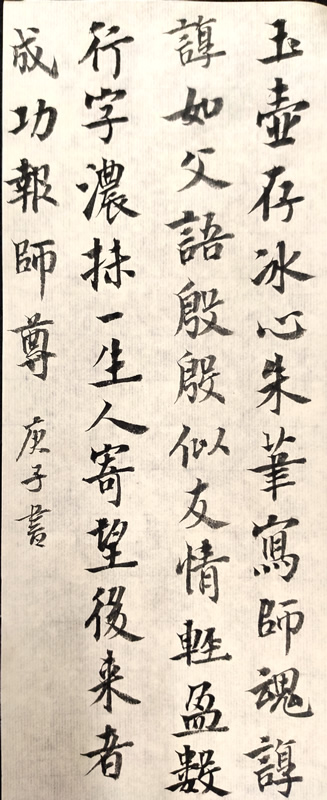 玉壺存冰心朱筆寫師魂諄
諄如父語殷殷似友情輕盈數
行字濃抹一生人寄望後来者
成功報師尊
庚子書